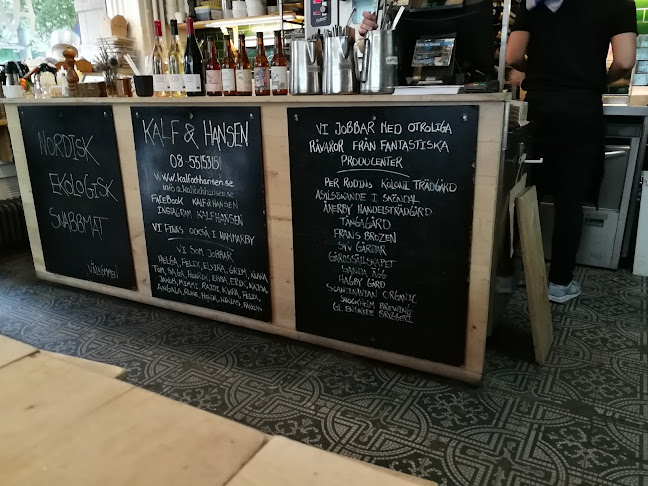 NORDISK
EKOLOGISK
SNABBMAT
VÄLKOMMEN!
KALF & HANSEN
08-5515315
www.kalfochhansen.se
info@kalfochhansen.se
FACEBOOK KALF&HANSEN
INSTAGRAM KALFHANSEN
VI FINNS OCKSÅ I HAMMARBY
VI SOM JOBBAR
HELGA, FELIX, ELVIRA, GRIM,
TOM, SAGA, HENRIK, ERIK,
RUNE, HELGA, NIKLAS, FABIAN
VI JOBBAR MED OTROLIGA
RÅVAROR FRÅN FANTASTISKA
PRODUCENTER
PER RUDINS KOLONITRÄDGÅRD
ASYLSÖKANDE I SKÖNDAL
ÅKERBY HANDELSTRÄDGÅRD
TÄNGAGÅRD
FRANS BROZEN
SJU GÅRDAR
GÄRDSSÄLLSKAPET
SANDA ÄGG
HAGBY GÅRD
SCANDINAVIAN ORGANIC
STOCKHOLM BREWING
BRYGGERI